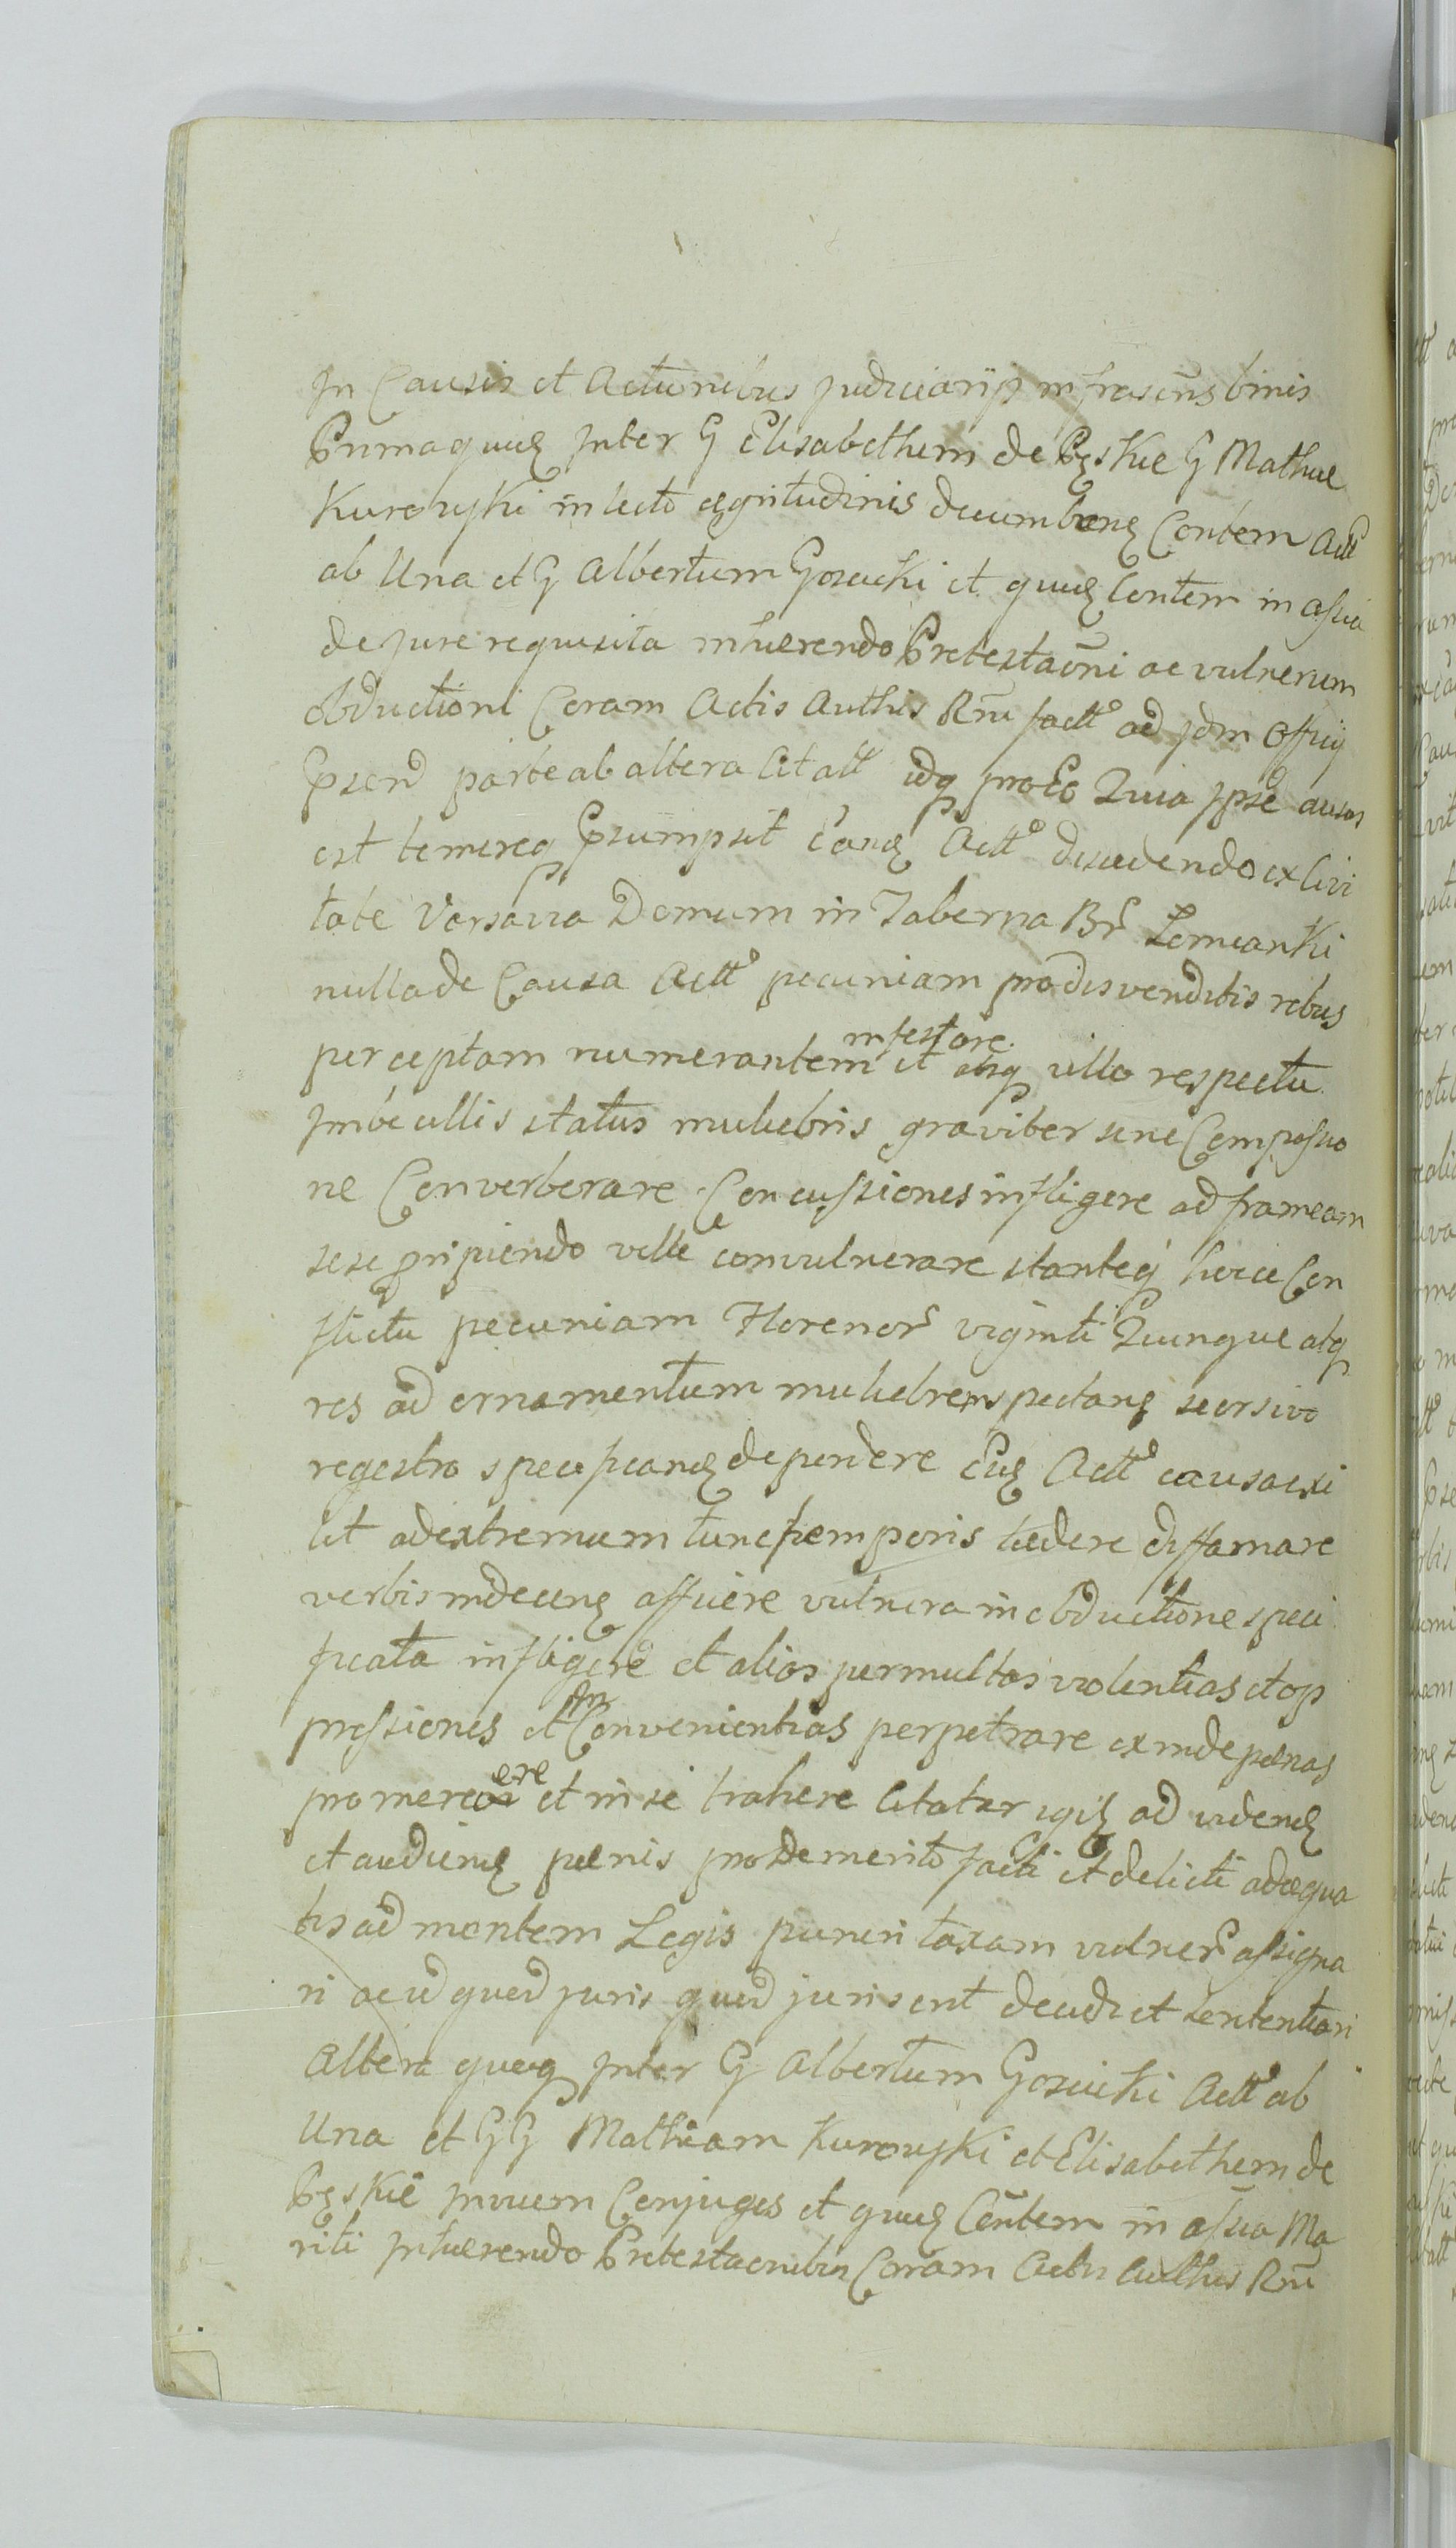 In Causis et Actionibus Judiciarijs infrascris binis
Primaquidē Inter G Elisabethem de Pęskie G Mathiae
Kuroryski in lecto aegritudinis decumbenē Contem Act
ab Una et G Albertum Gosecki et quidē Contem in assia
de Jure requisita inhaerendo Protestaōni ac vulnerum
obductioni Coram Actis Authis Rm factt ad Idm Officij
Psend parte ab altera Citatt idq pro Eo Quia Ipse ausus
est temereq Psumpsit Eandē Acttᵒ discedendo ex Civi
tate Varsavia Domum in Taberna Br Lomianki
nulla de Causa Acttᵒ pecuniam pro disvenditis rebus
perceptam numerantem infestare et absq ullo respectu
Imbecillis status muliebris graviter sine Compassio
ne Converberare Concussiones infligere ad frameam
sese pripiendo velle convulnerare stanteq hocce Con
flictu pecuniam Florenor viginti Quinque atq
res ad ornamentum muliebrem spectanē seorsivo
regestro specificandē deperdere Eidē Acttᵒ causa exi
tit ad extremum tunc temporis laedere diffamare
verbis indecenē afficere vulnera in obductione speci
ficata infligere et alias permultas violentias et op
pressiones et In Convenientias perpetrare exinde paenas
promerere et in se trahere Citatur igiē ad videndē
et audiendē paenis pro demerito facti et delicti adaequa
tis ad mentem Legis puniri taxam vulner assigna
ri ac id quod juris quid juris erit decidi et sententiari
Altera queq Inter G Albertum Gosecki Actt ab
Una et GG Mathiam Kuroryski et Elisabethem de
Pęskie Invicem Conjuges et quidē Cōntem in assia Ma
riti Inhaerendo Protestaonibus Coram Actis Authis Rm